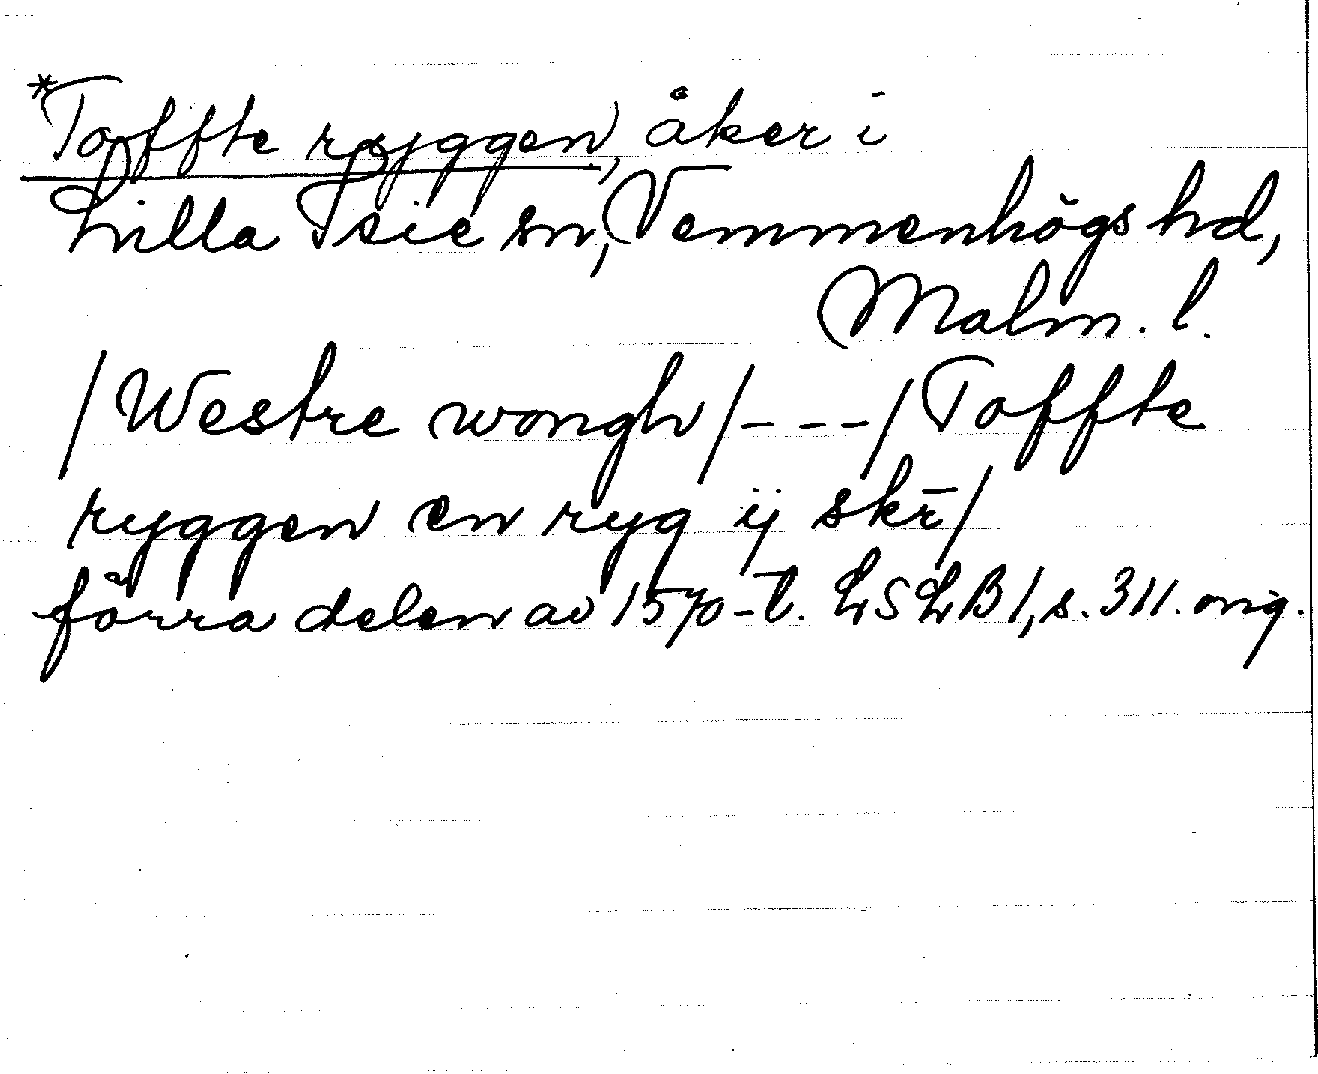 *Toffte ryggen, åker i
Lilla Isie sn, Vemmenhögs hd,
Malm. l.
/Westre wongh/---/Toffte
ryggen en ryg ij skr̄/
förra delen av 1570-t. LSLB 1, s. 311. orig.